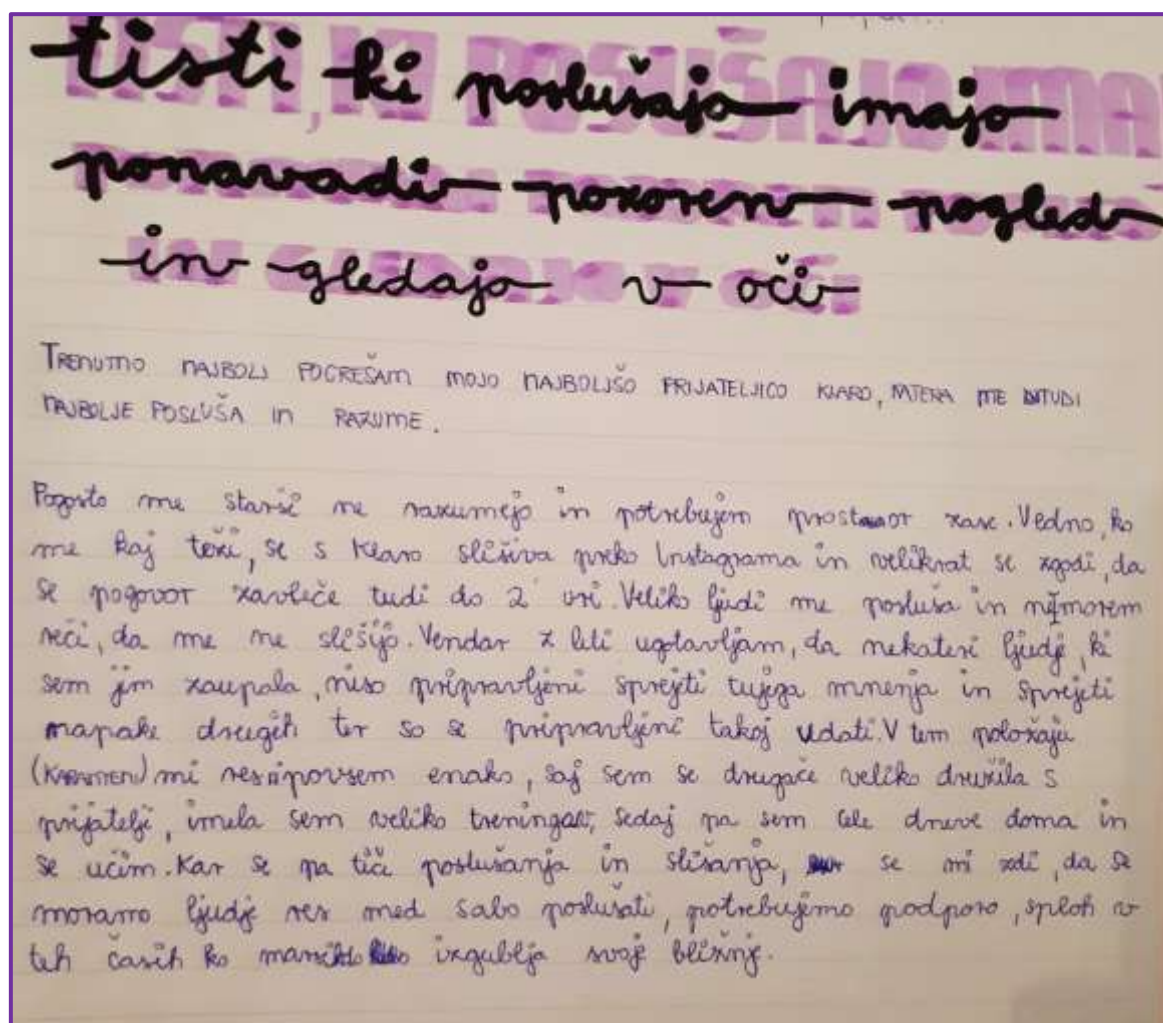 tisti ki poslušajo imajo
ponavadi pozoren pogled
in gledajo v oči
TRENUTNO NAJBOLJ POGREŠAM MOJO NAJBOLJŠO PRIJATELJICO KLARO, KATERA ME TUDI
NAJBOLJE POSLUŠA IN RAZUME.
Pogosto me starši ne razumejo in potrebujem prostor zase. Vedno, ko
me kaj teži, se s Klaro slišiva preko Instagrama in velikrat se zgodi, da
se pogovor zavleče tudi do 2 uri. Veliko ljudi me posluša in nemorem
reči, da me ne slišijo. Vendar z leti ugotavljam, da nekateri ljudje, ki
sem jim zaupala, niso pripravljeni sprejeti tujega mnenja in sprejeti
napake drugih ter so se pripravljeni takoj vdati. V tem položaju
(KARANTENI) mi res ni povsem enako, saj sem se drugače veliko družila s
prijatelji, imela sem veliko treningov, sedaj pa sem cele dneve doma in
se učim. Kar se pa tiče poslušanja in slišanja, se mi zdi, da se
moramo ljudje res med sabo poslušati, potrebujemo podporo, sploh v
teh časih ko marsikdo izgublja svoje bližnje.